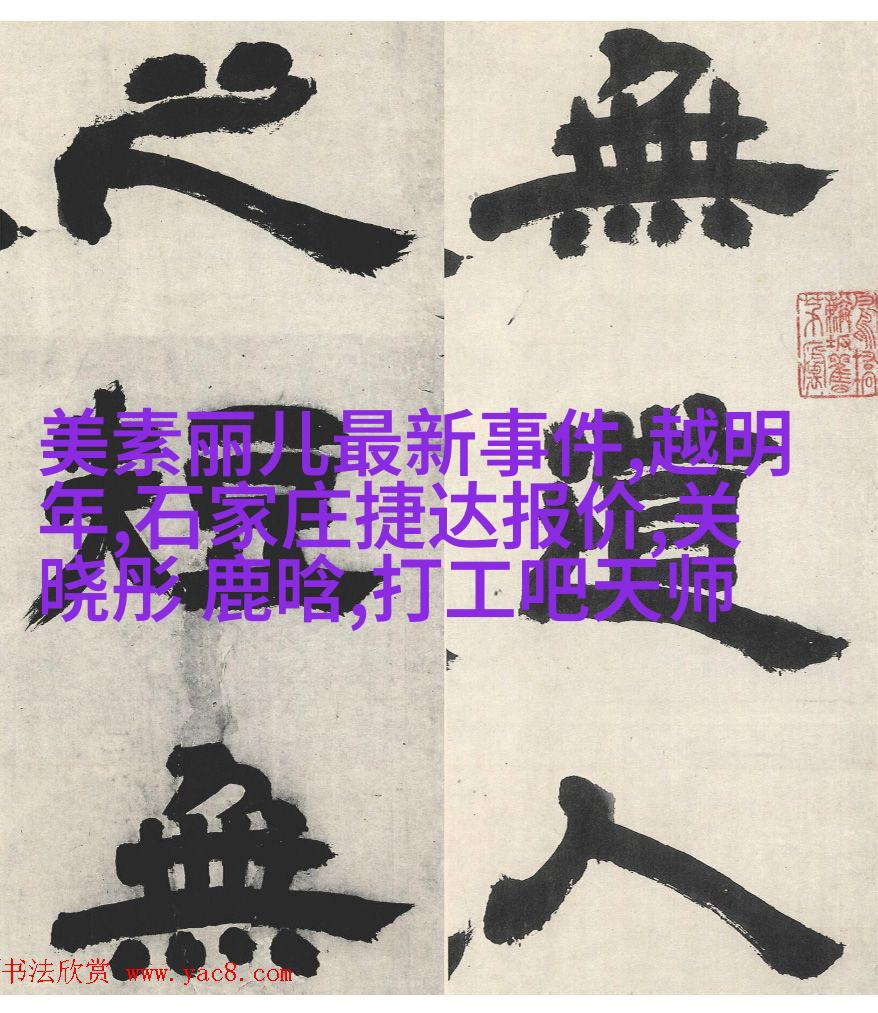 無人
之無
美素丽儿最新事件,越明
年,石家庄捷达报价,关
晓彤 鹿晗,打工吧天师
书法欣赏 www.yac8.com